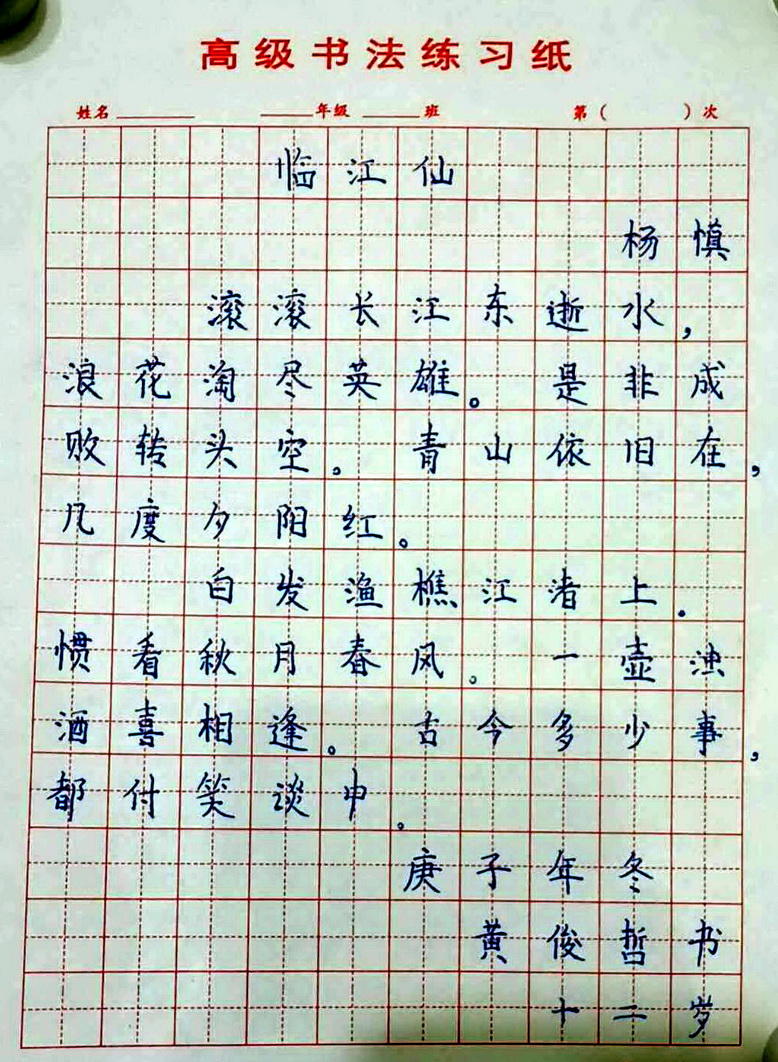 高级书法练习纸
姓名 年级 班 第( )次
临江仙
杨慎
滚滚长江东逝水,
浪花淘尽英雄。是非成
败转头空。青山依旧在,
几度夕阳红。
白发渔樵江渚上.
惯看秋月春风。一壶浊
酒喜相逢。古今多少事,
都付笑谈中。
庚子年冬
黄俊哲书
十二岁